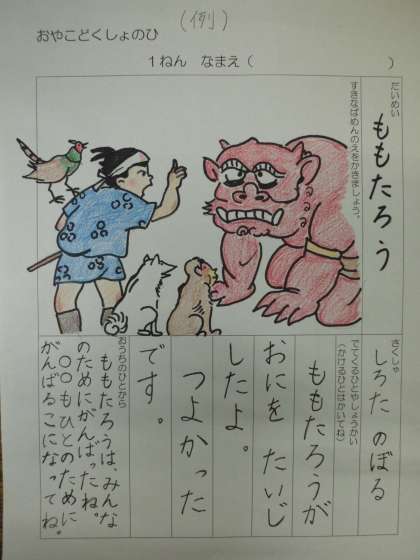 (例)
おやこどくしょのひ
1ねん なまえ( )
だいめい
ももたろう
すきなばめんのえをかきましょう。
さくしゃ
しろた のぼる
でてくるひとやしょうかい
(かけるひとはかいてね)
ももたろうが
おにを たいじ
したよ。
つよかった
です。
おうちのひとから
ももたろうは、みんな
のためにがんばったね。
○○もひとのために
がんばるこになってね。